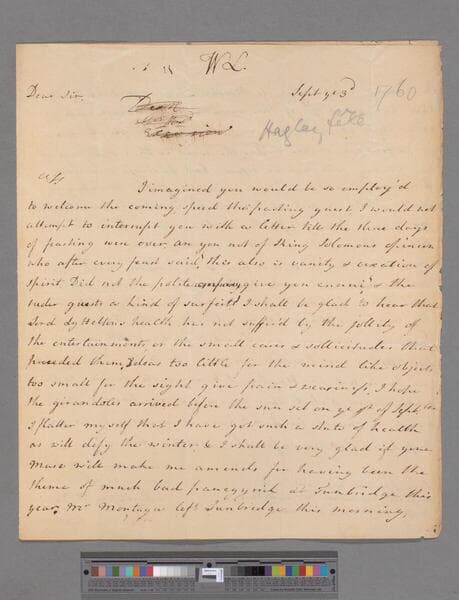 W L.
Dear Sir, Sept ye 3d 1760
Hagley fête
I imagined you would be so employ'd
to welcome the coming speed the parting guest, I would not
attempt to interrupt you with a letter till the three days
of feasting were over, are you not of King Solomons opinion
who after every feast said, this also is vanity & vexation of
spirit. Did not the polite company give you ennui, & the
ruder guests a kind of surfeit? I shall be glad to hear that
Lord Lytteltons health has not suffer'd by the jollity of
the entertainments, or the small cares & sollicitudes that
preceded them, Ideas too little for the mind like objects
too small for the sight give pain & weariness, I hope
the girandoles arrived before the sun set on ye of Septbre
I flatter myself that I have got such a state of health
as will defy the winter & I shall be very glad if your
Muse will make me amends for having been the
theme of much bad panegyrick at Tunbridge this
year, Mr Montagu left Tunbridge this morning,